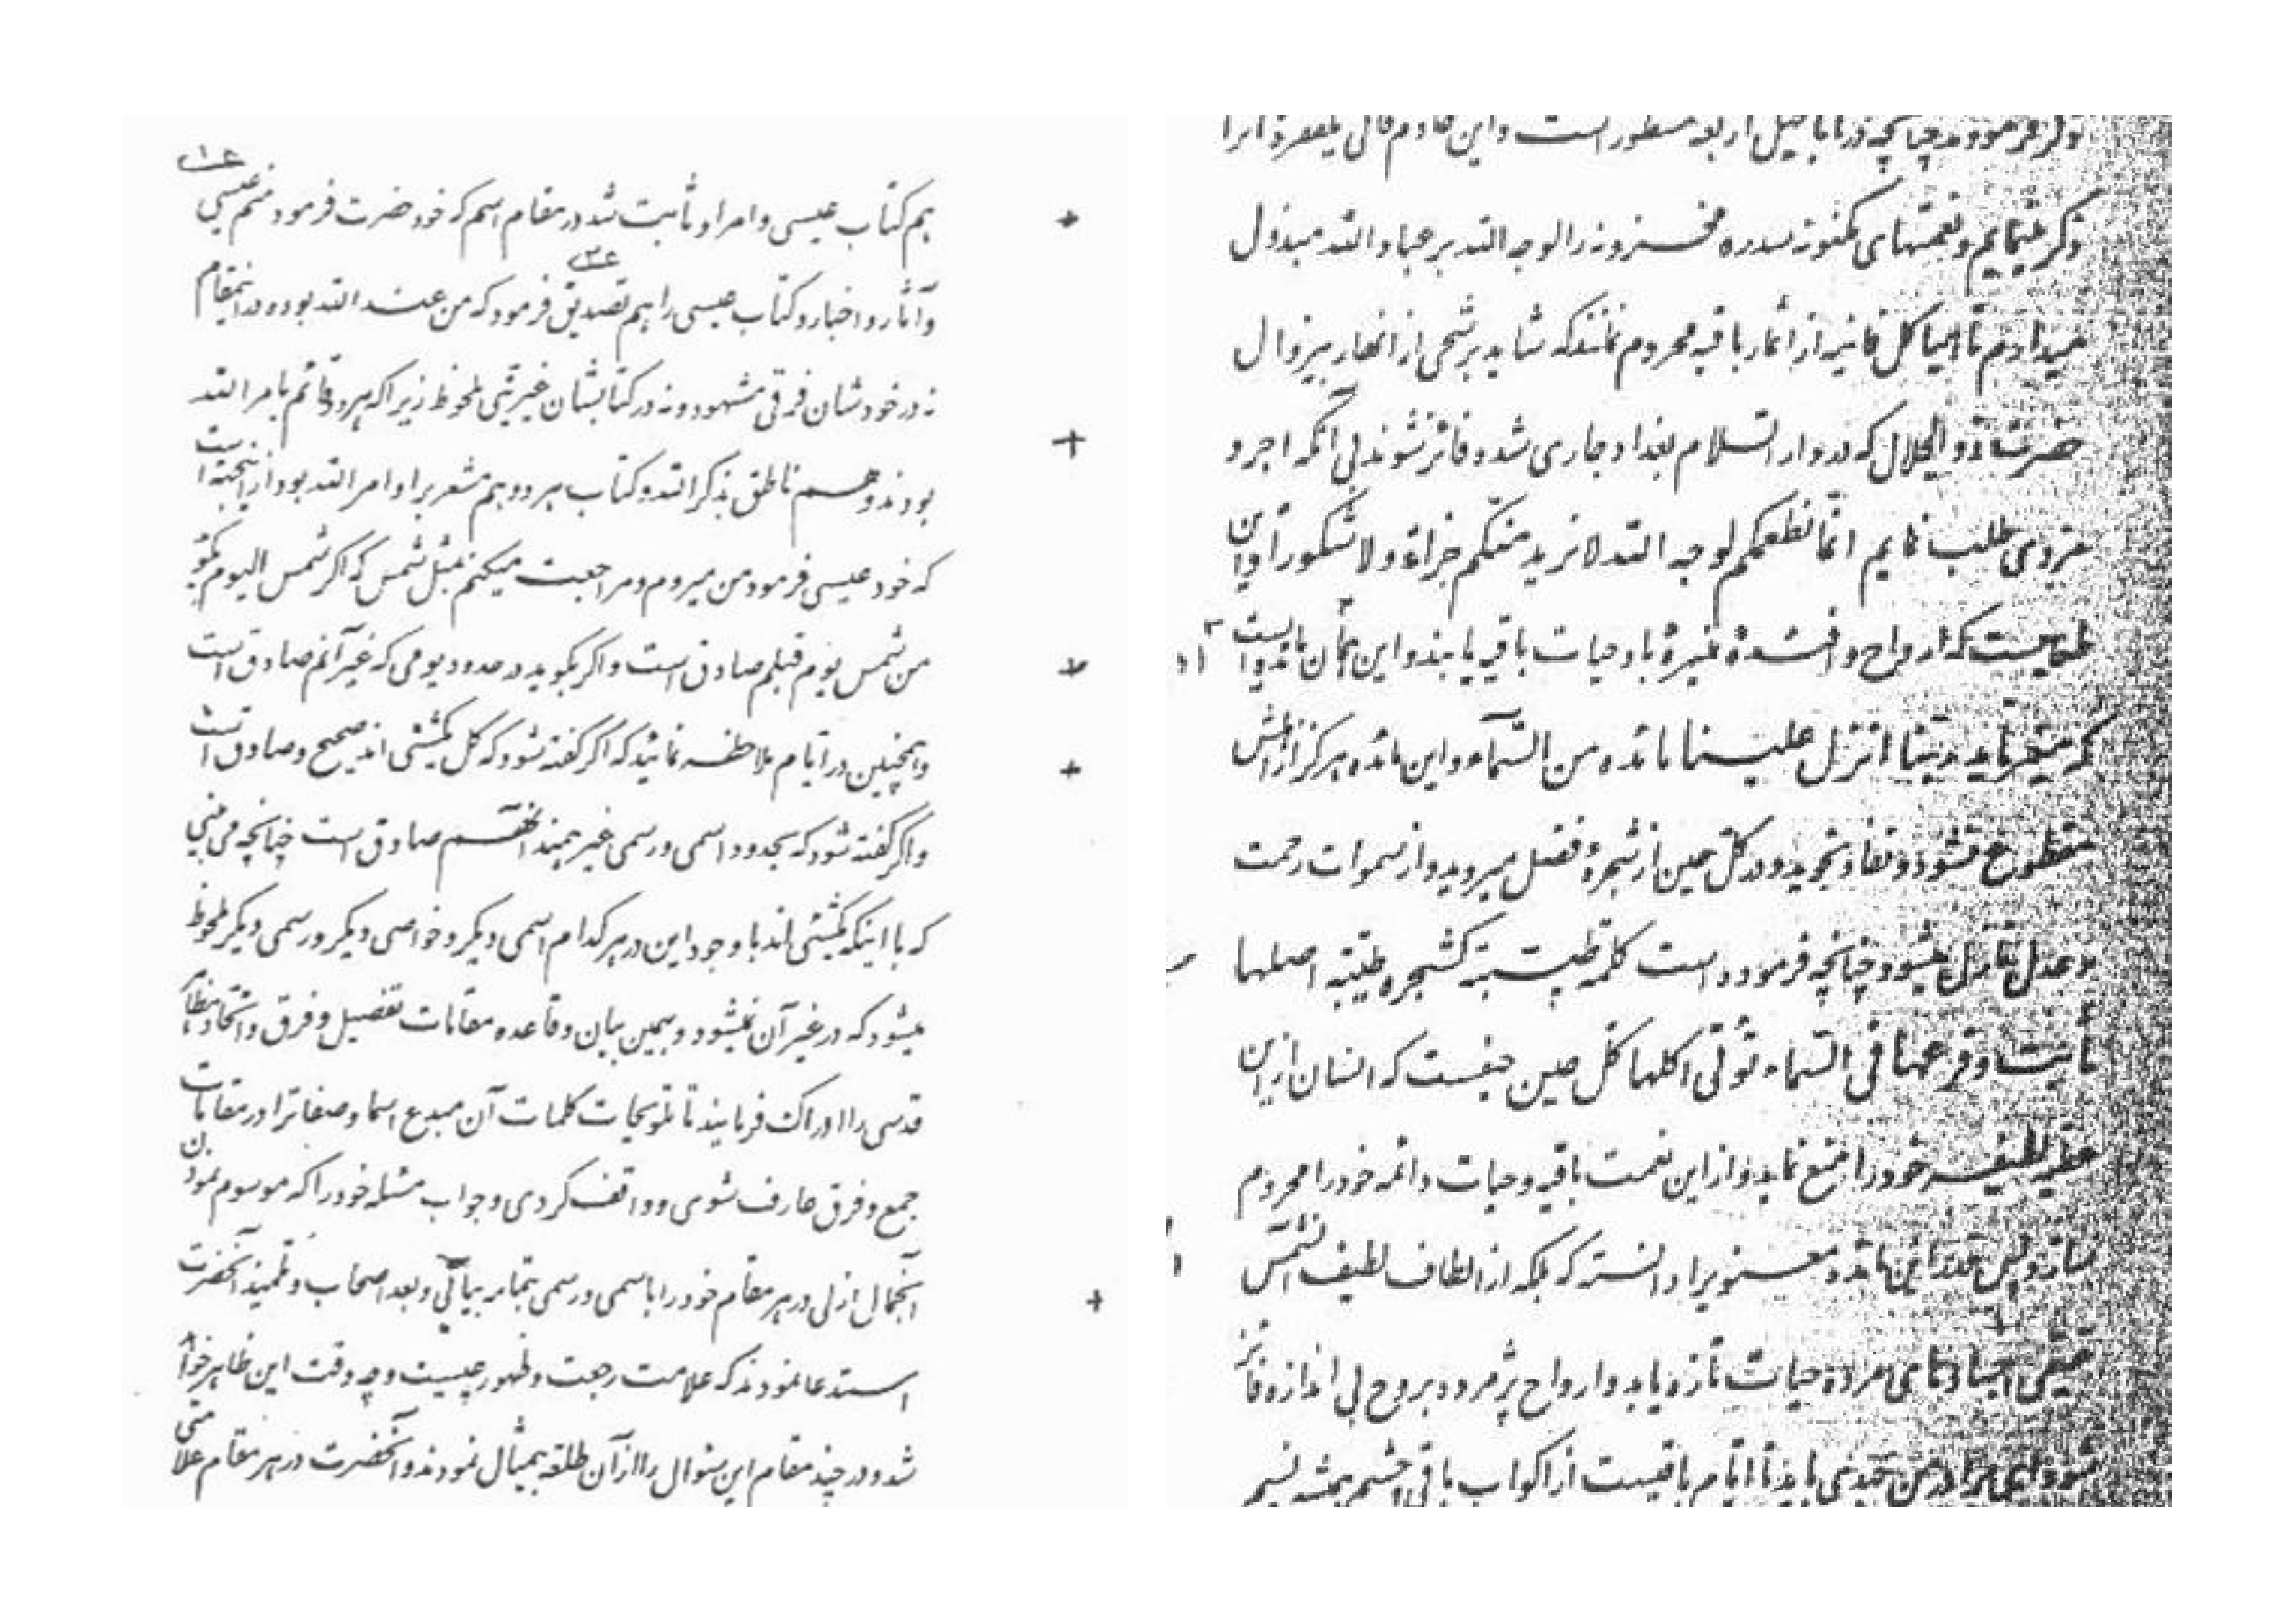 ذکر مینمایم و نعمتهای مکنونه سدره مخزونه را لوجه الله بر عباد الله مبذول
میدارم تا هیاکل فانیه از اثمار باقیه محروم نمانند که شاید برشحی از انهار بیزوال
حضرت ذو الجلال که در دار السلام بغداد جاری شده فائز شوند بی آنکه اجر و
مزدی طلب نمایم انما نطعمکم لوجه الله لا نرید منکم جزاء و لا شکورا و این
طعامیست که ارواح و افئده منیره باو حیات باقیه یابند و این همان مائده ایست
که میفرماید ربنا انزل علینا مائدة من السماء و این مائده هرگز از اهلش
مقطوع نشود و نفاد نجوید و در کل حین از شجره فضل میروید و از سموات رحمت
و عدل نازل میشود چنانچه فرموده است کلمة طیبة کشجرة طیبة اصلها
ثابت و فرعها فی السماء تؤتی اکلها کل حین حیفست که انسان از این
عطیه لطیفه خود را منع نماید و از این نعمت باقیه و حیات دائمه خود را محروم
سازد پس قدر این مائده معنوی را دانسته که بلکه از الطاف لطیف آن شمس
حقیقی اجسادهای مرده حیات تازه یابد و ارواح پژمرده بروح بی اندازه فائز
شود ای برادر من جهدی باید تا ایام باقیست از اکواب باقی چشیم همیشه نسیم
۱۴
هم کتاب عیسی و امر او ثابت شد در مقام اسم که خود حضرت فرمود منم عیسی
و آثار و اخبار و کتاب عیسی را هم تصدیق فرمود که من عند الله بوده در اینمقام
نه در خودشان فرقی مشهود و نه در کتابشان غیریتی ملحوظ زیرا که هر دو قائم بامر الله
بودند و هم ناطق بذکر الله و کتاب هر دو هم مشعر بر اوامر الله بود از این جهة است
که خود عیسی فرمود من میروم و مراجعت میکنم بمثل شمس که اگر شمس الیوم بگوید
من شمس یوم قبلم صادق است و اگر بگوید در حدود یومی که غیر آنم صادق است
و همچنین در ایام ملاحظه نمائید که اگر گفته شود که کل یکشئی اند صحیح و صادق است
و اگر گفته شود که بحدود اسمی و رسمی غیر همند آنهم صادق است چنانچه می بینی
که با اینکه یکشئی اند با وجود این در هر کدام اسمی دیگر و خواصی دیگر و رسمی دیگر ملحوظ
میشود که در غیر آن نمیشود و بهمین بیان و قاعده مقامات تفصیل و فرق و اتحاد مظاهر
قدسی را ادراک فرمایند تا تلویحات کلمات آن مبدع اسما و صفات را در مقامات
جمع و فرق عارف شوی و واقف گردی و جواب مسئله خود را که موسوم نمودن
آنجمال ازلی در هر مقام خود را باسمی و رسمی بتمامه بیابی و بعد اصحاب و تلامیذ آنحضرت
استدعا نمودند که علامت رجعت و ظهور چیست و چه وقت این ظاهر خواهد
شد و در چند مقام این سئوال را از آن طلعة بیمثال نمودند و آنحضرت در هر مقام علامتی